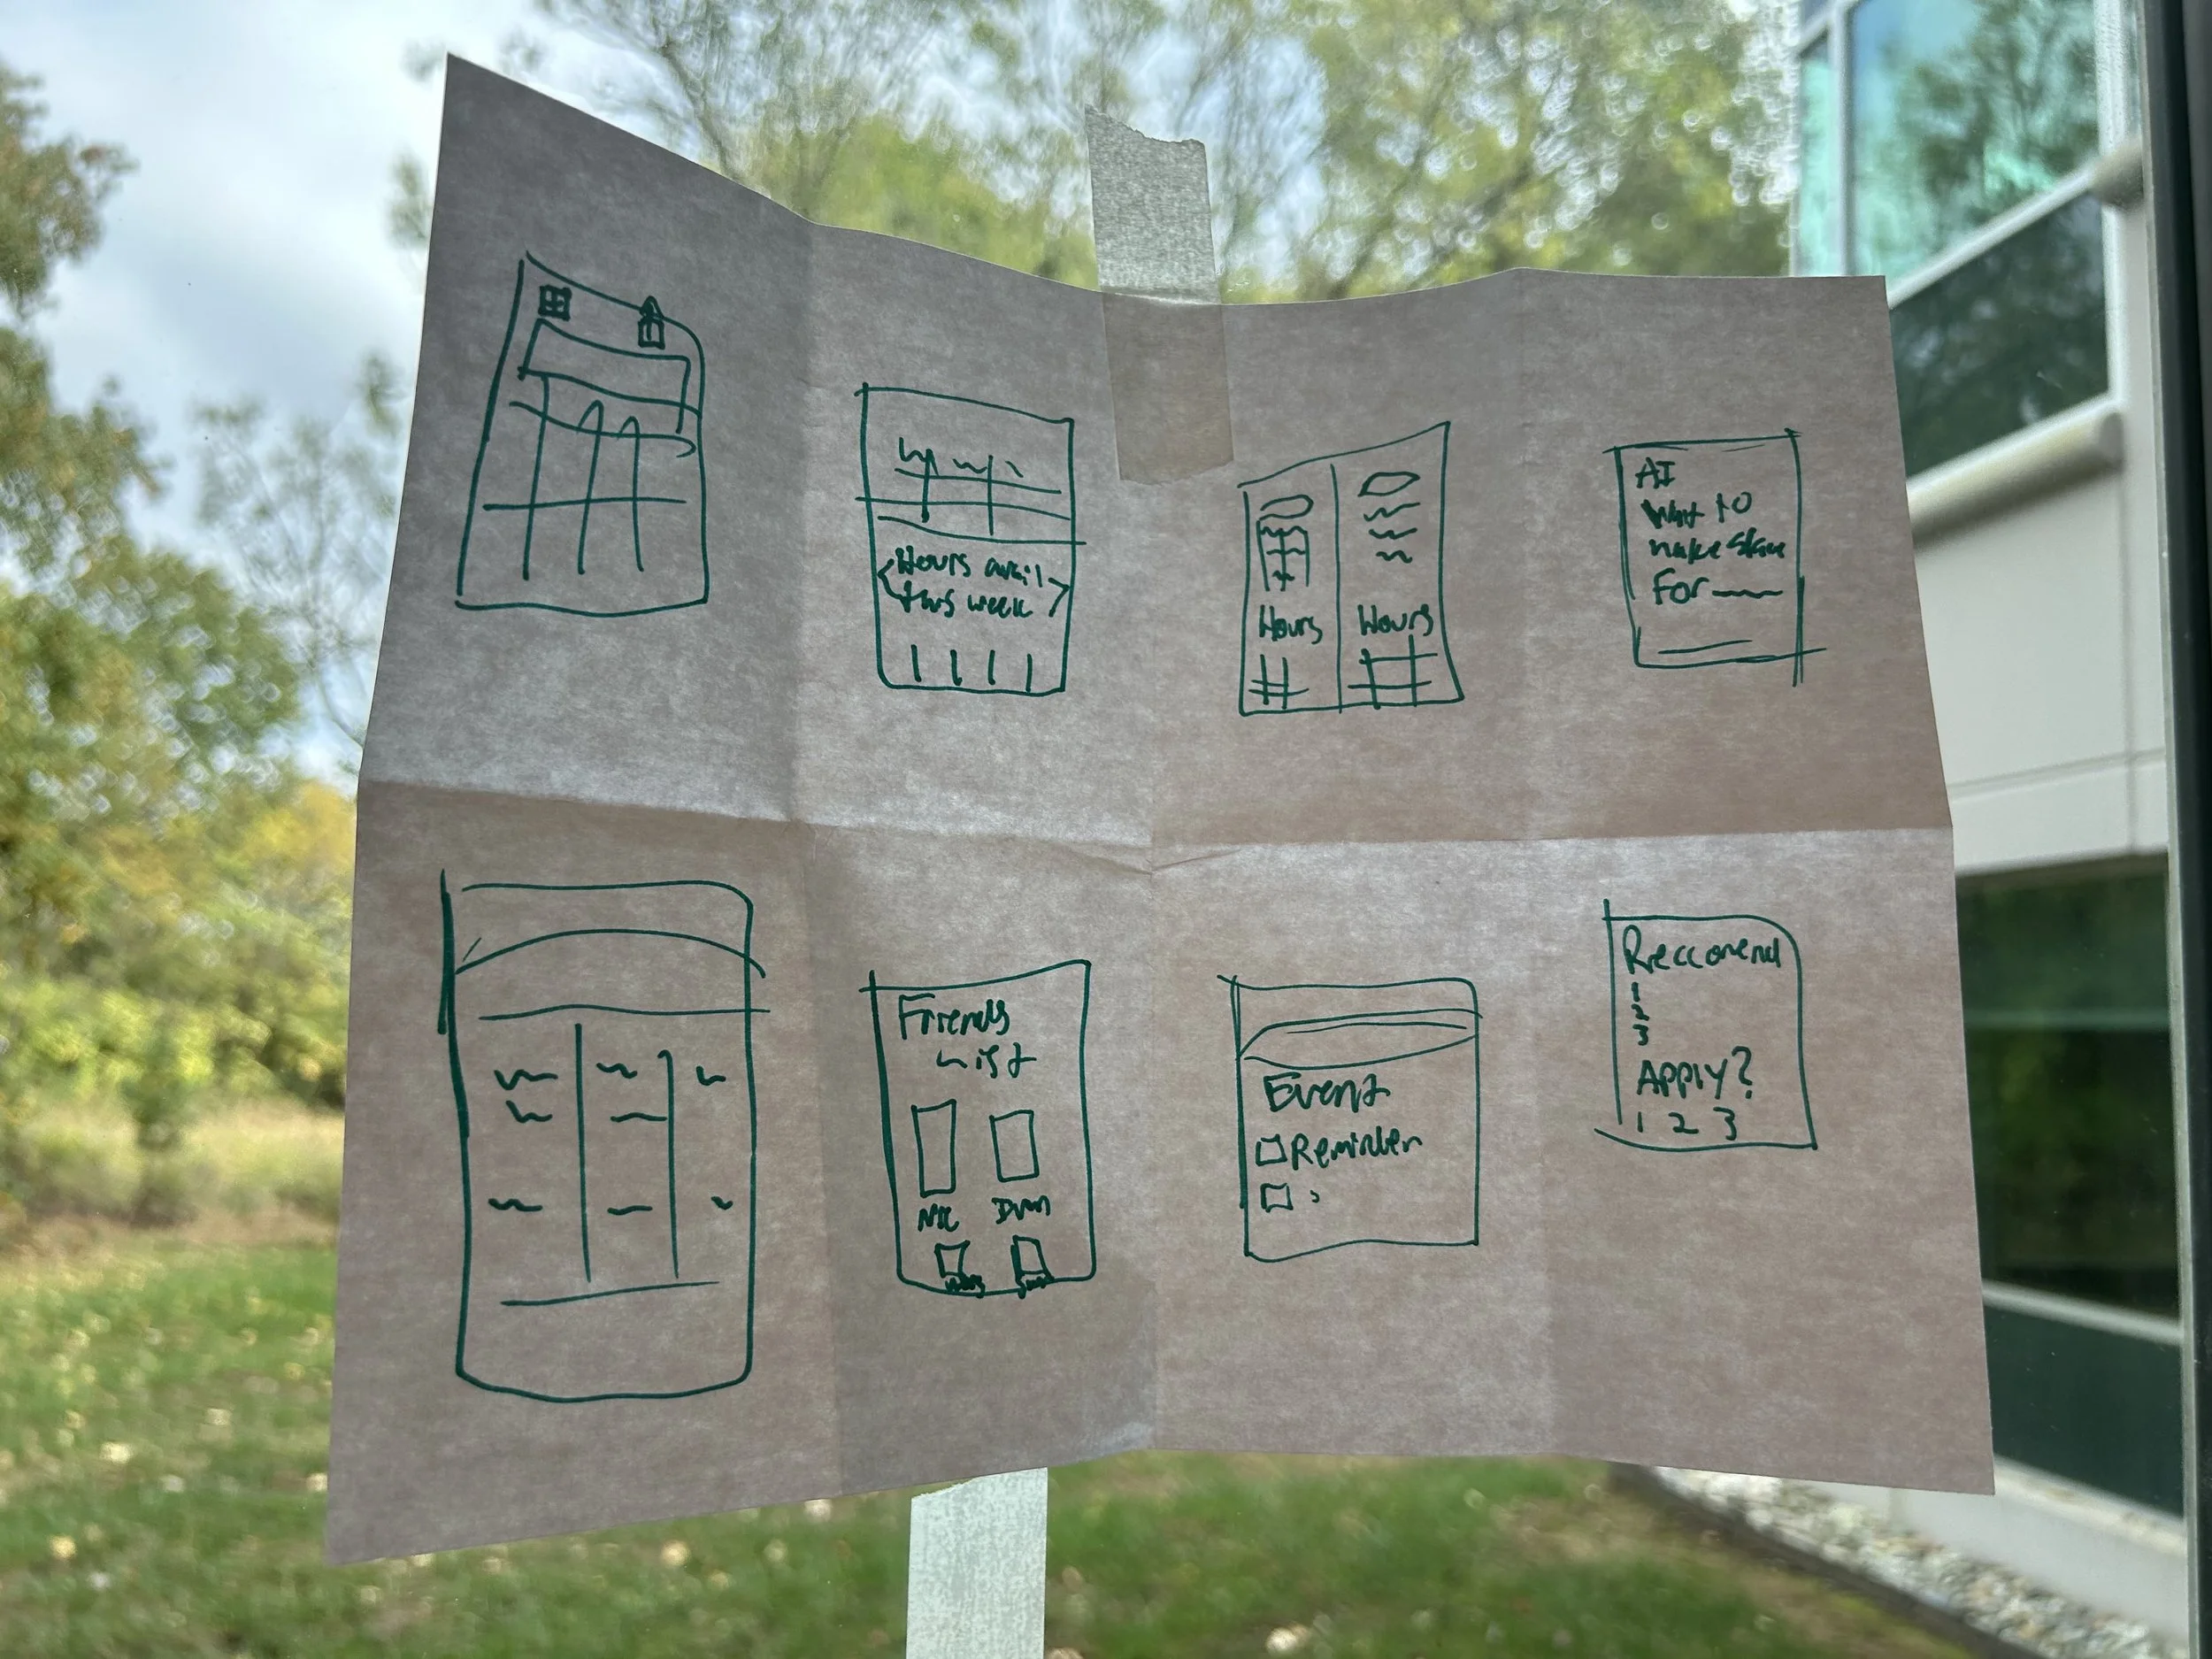 Hours avail
this week
Hours
Hours
AI
Way to
make
For
Friends
List
Event
Reminder
Reccomend
1
2
3
Apply?
1 2 3